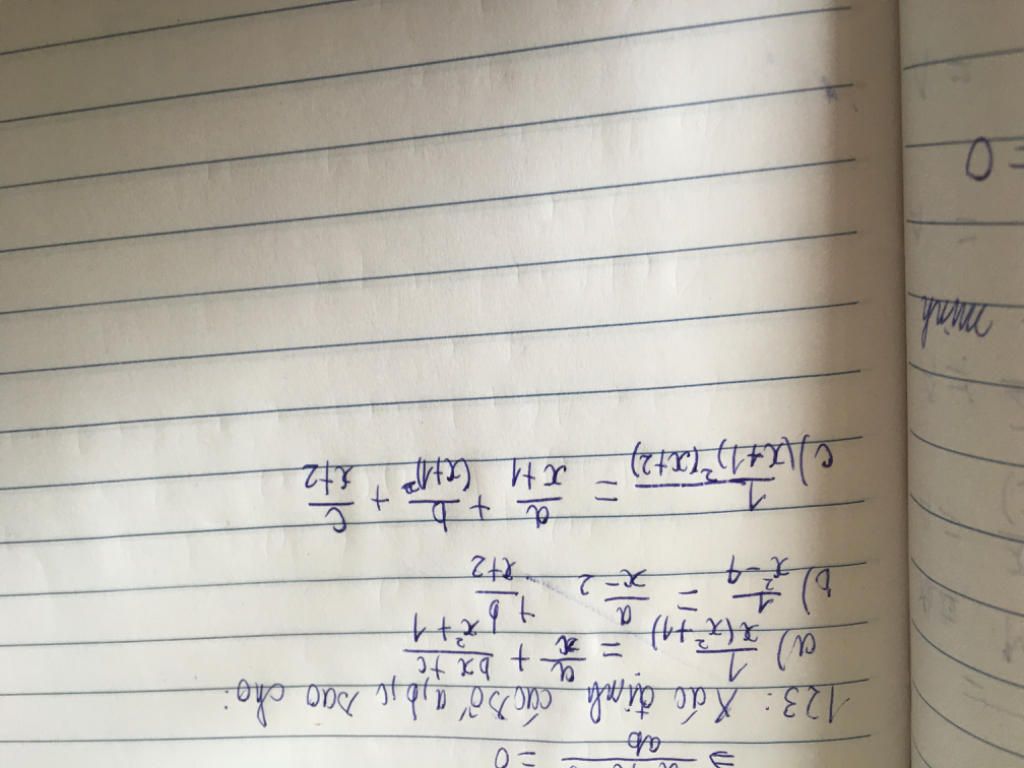 ab = 0
123: Xác định các số a,b,c sao cho:
a) 1/x(x²+1) = a/x + bx+c/x²+1
b) 1/x²-4 = a/x-2 + b/x+2
c) 1/(x+1)²(x+2) = a/x+1 + b/(x+1)² + c/x+2
minh
= 0